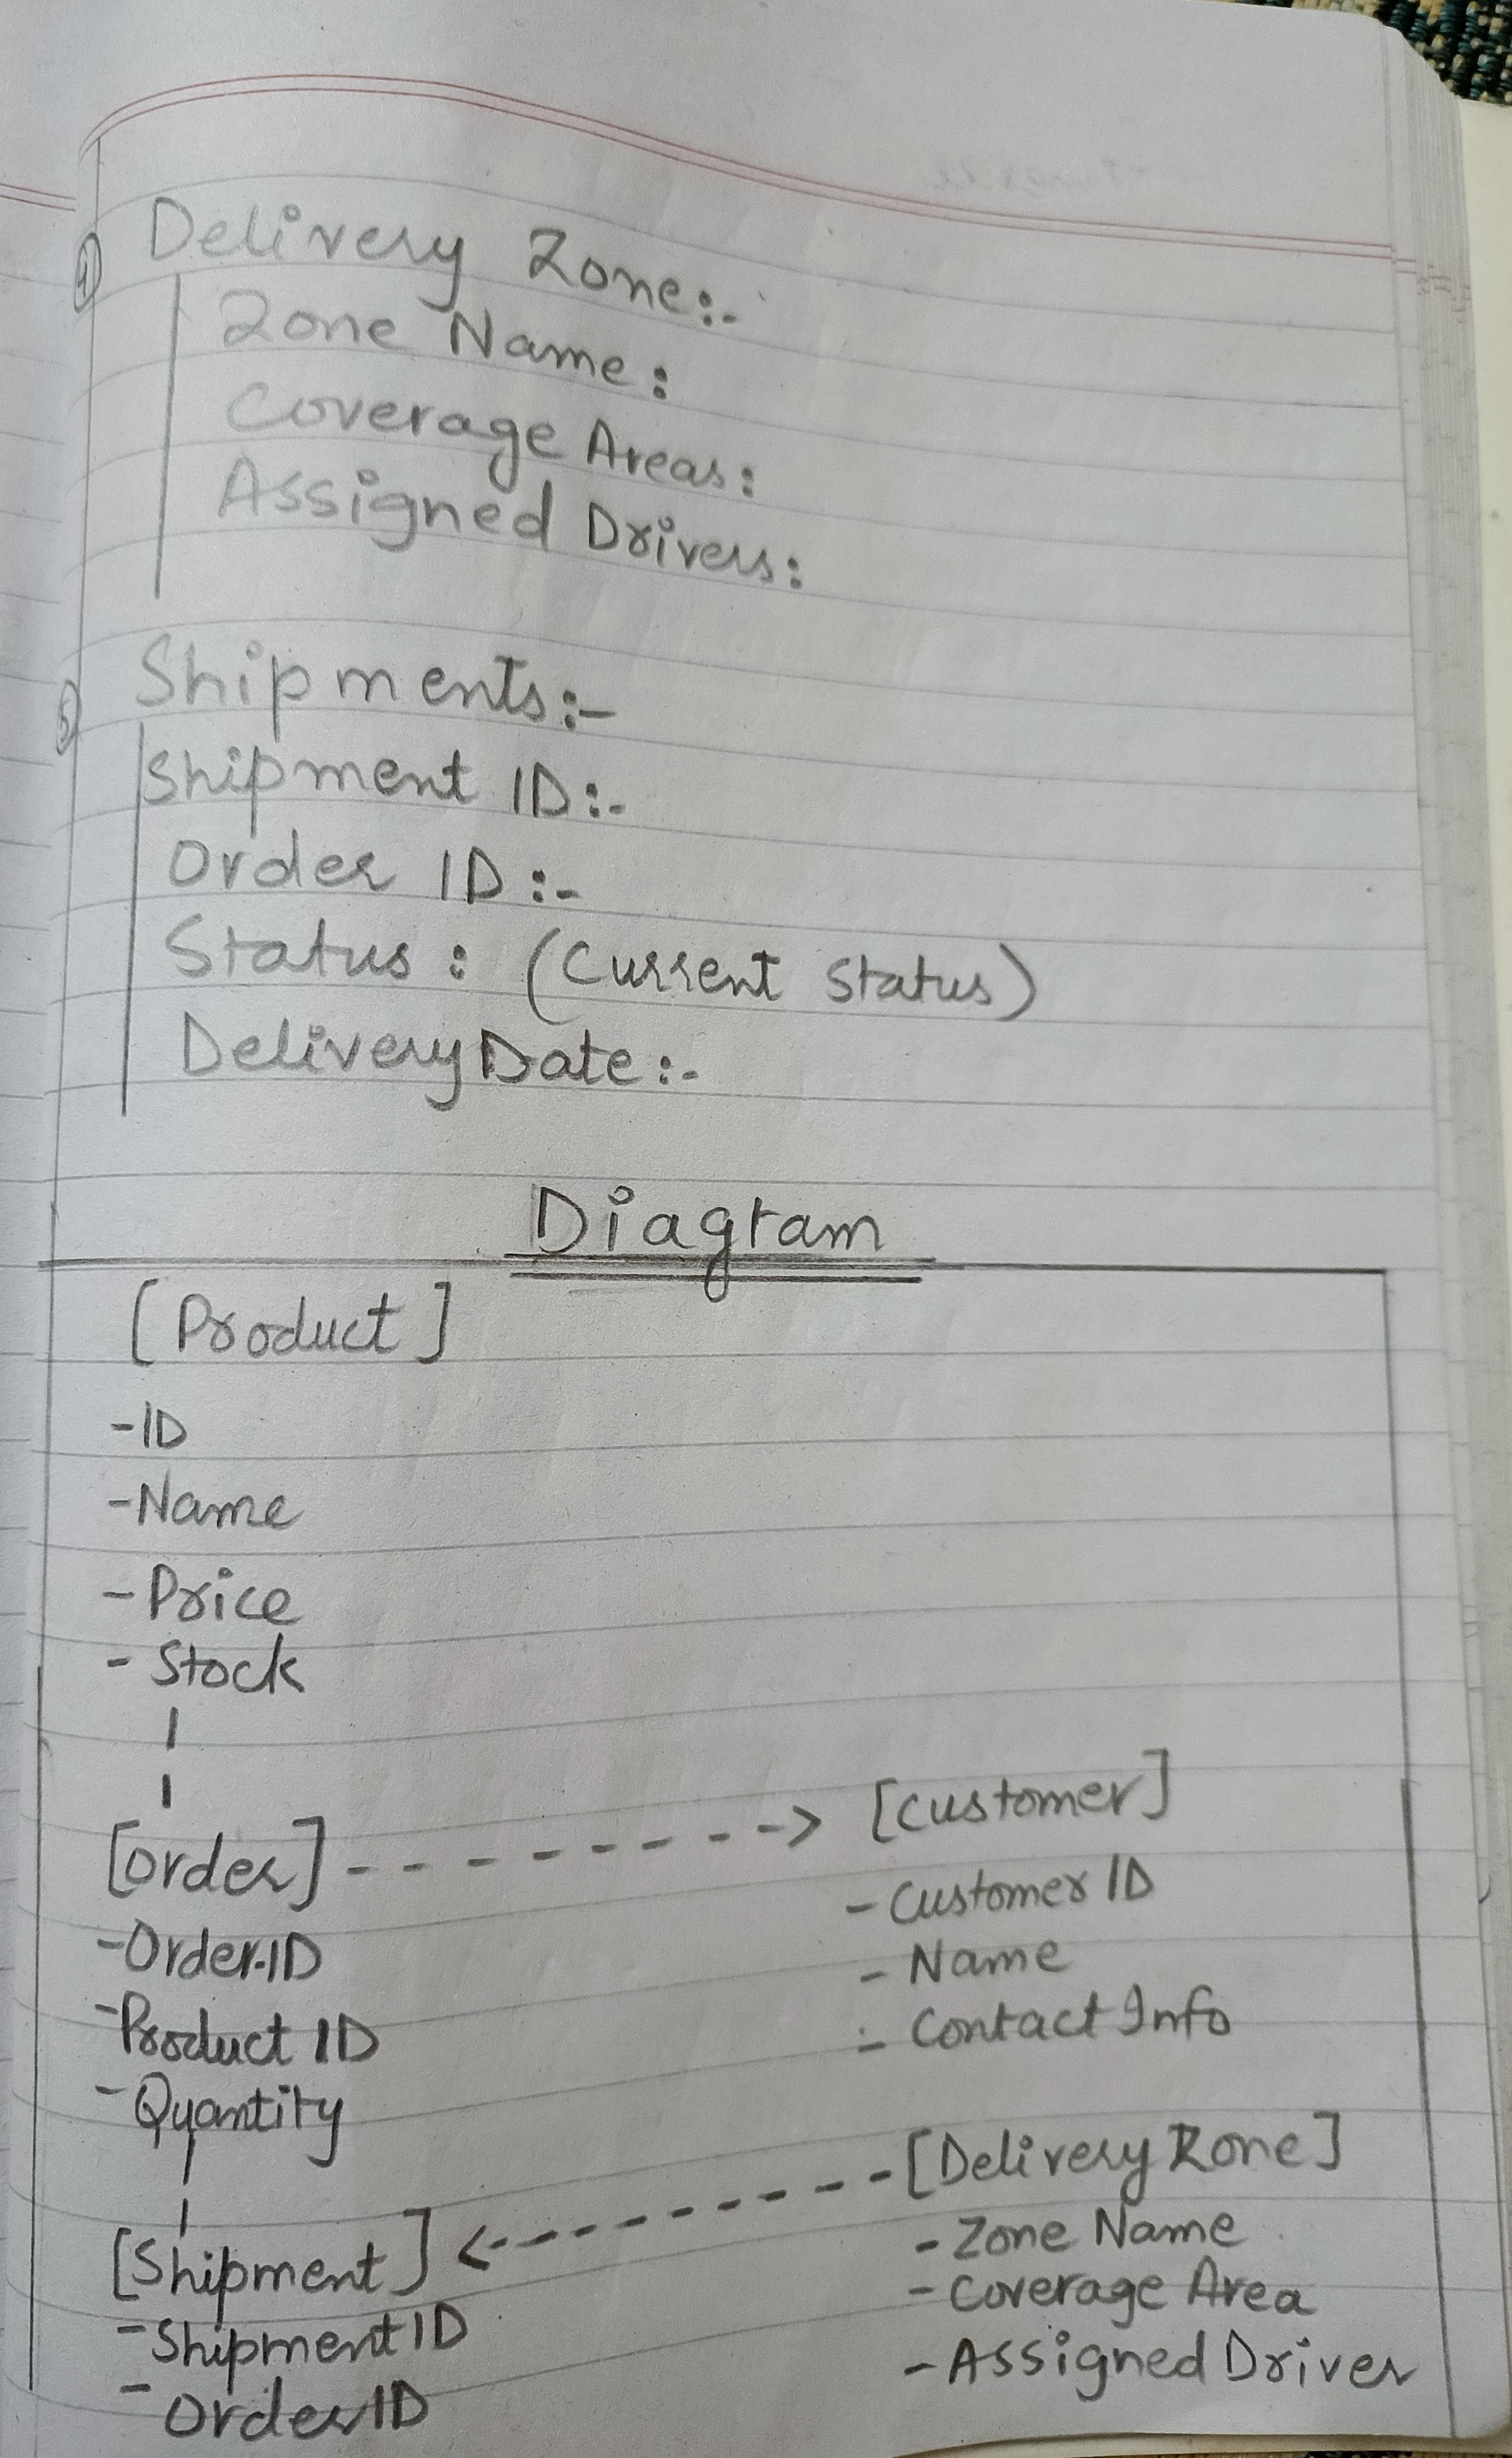 ④ Delivery Zone:-
Zone Name:
Coverage Areas:
Assigned Drivers:
⑤ Shipments:-
Shipment ID:-
Order ID:-
Status: (Current Status)
Delivery Date:-
Diagram
[Product]
-ID
-Name
-Price
- Stock
[Order] --------> [Customer]
-Order-ID
-Product ID
-Quantity
- Customer ID
- Name
- Contact Info
[Shipment] <-------- [Delivery Zone]
-Shipment ID
-Order ID
- Zone Name
- Coverage Area
- Assigned Driver